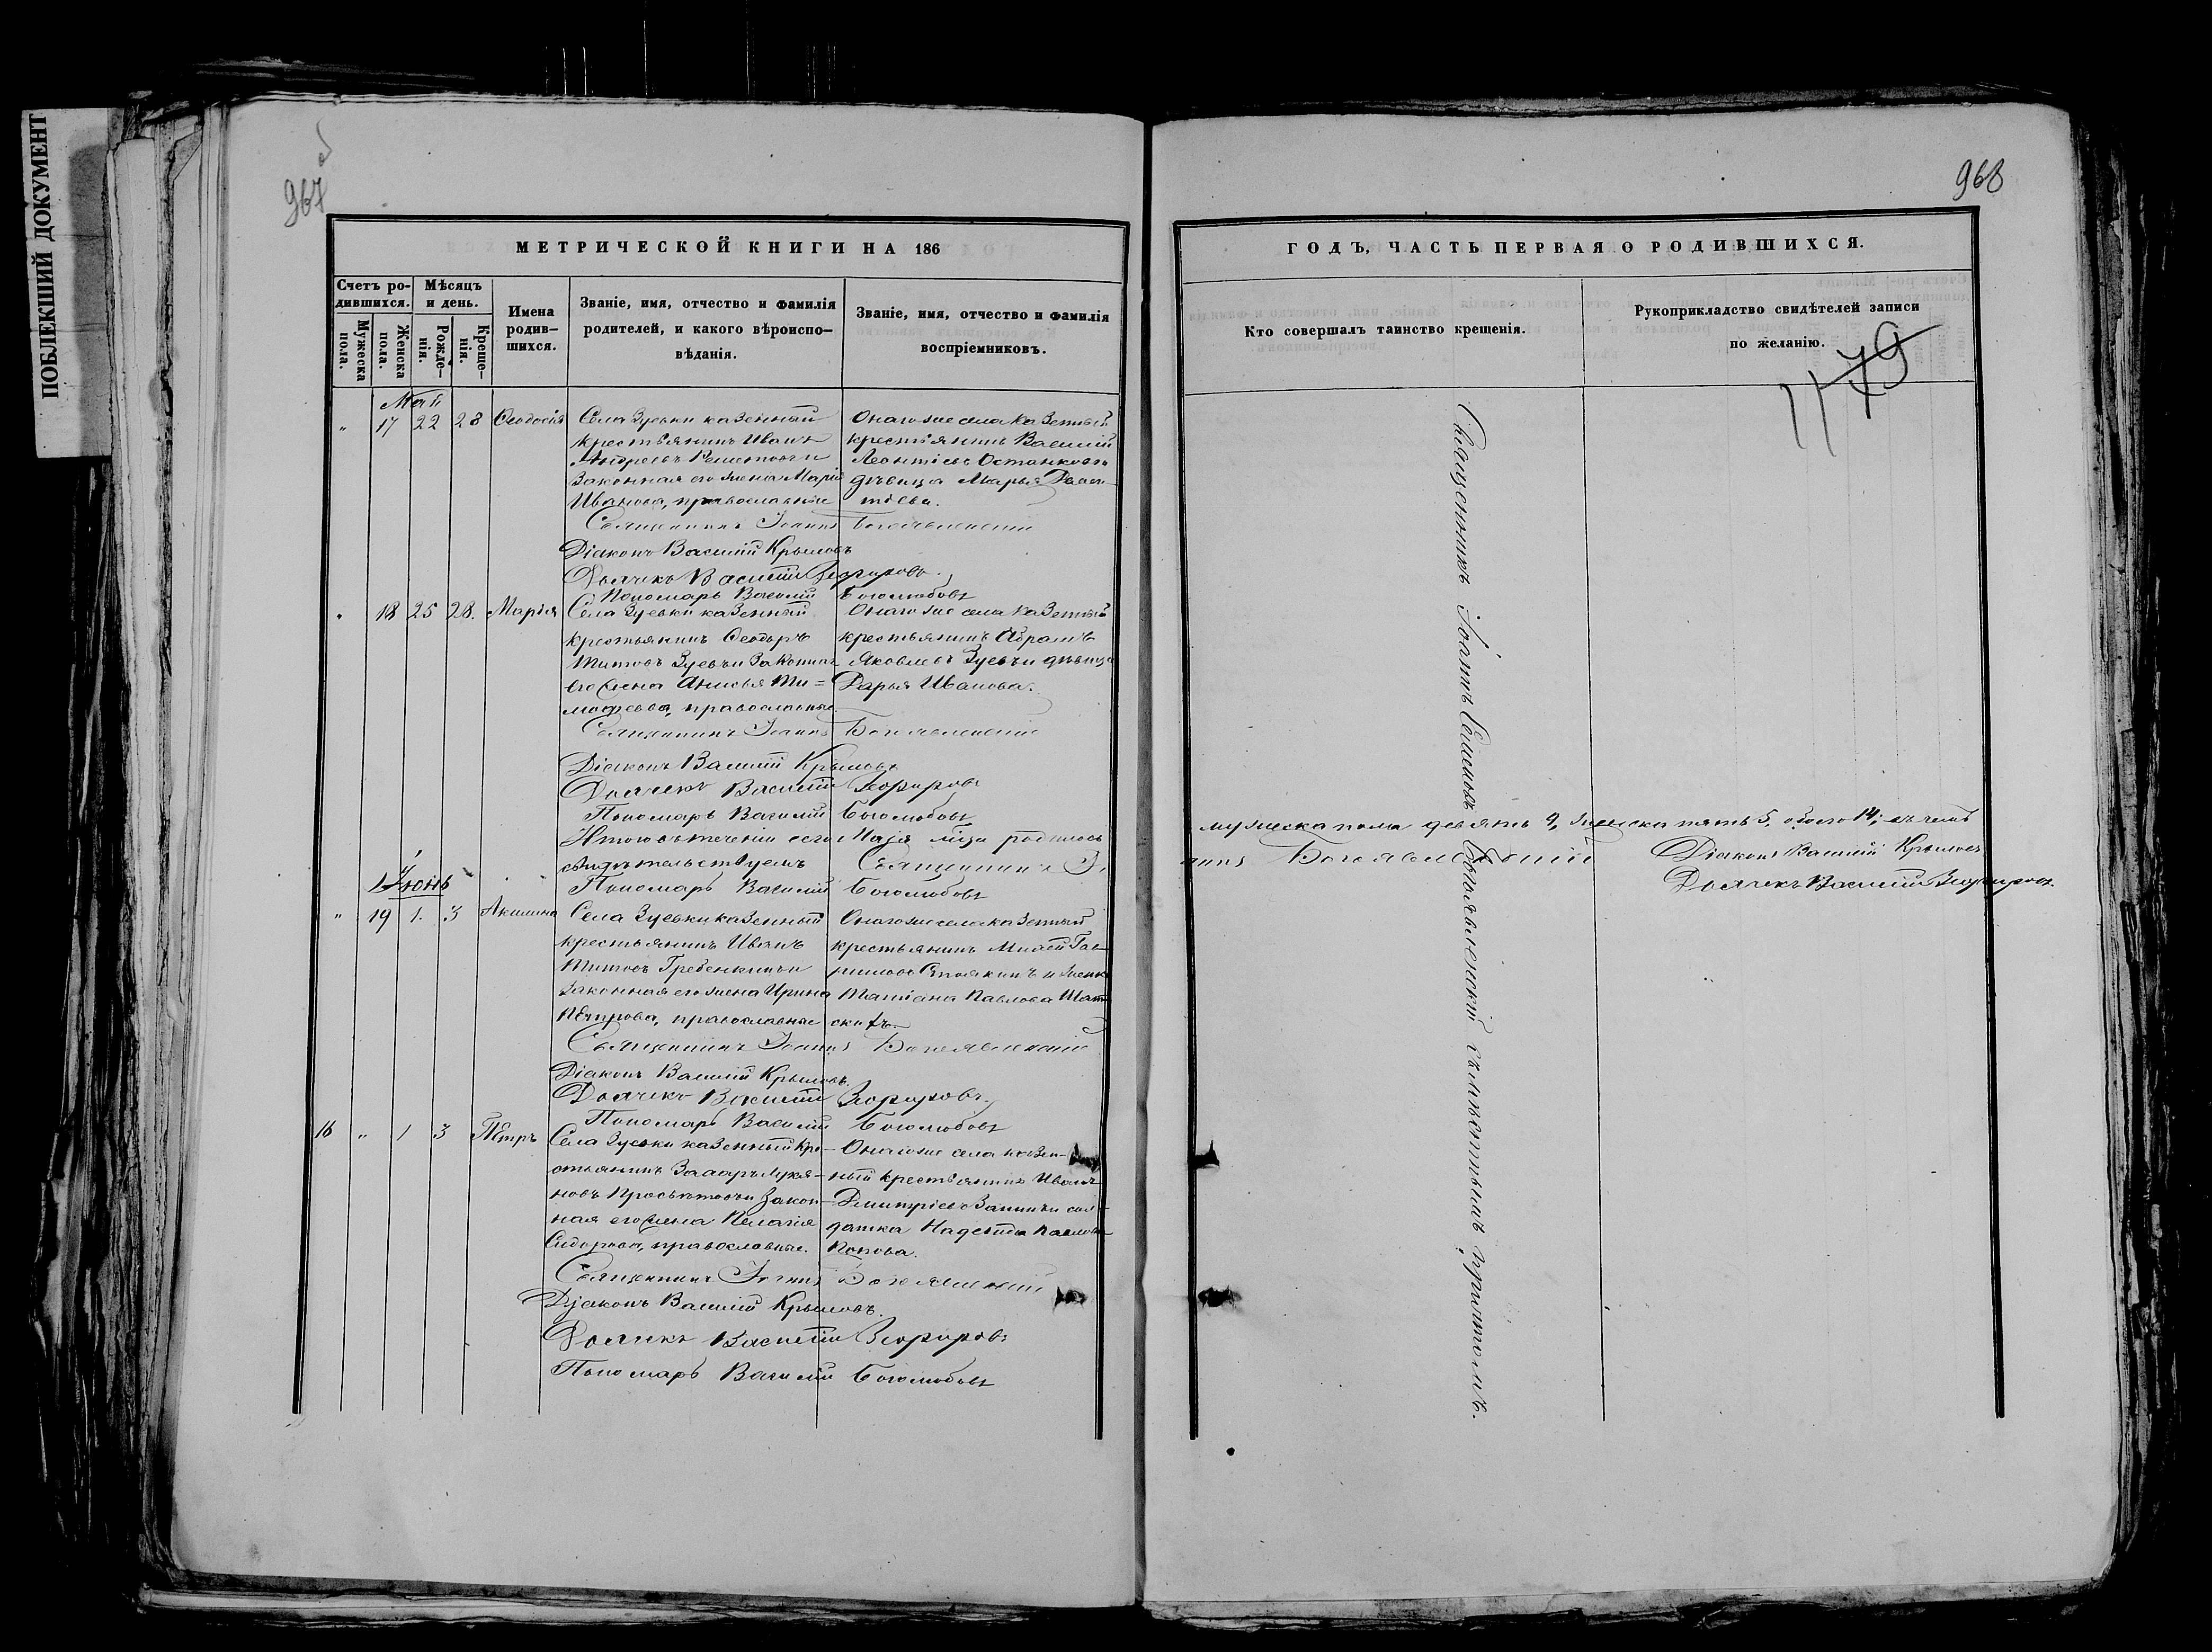 ПОБЛЕКШИЙ ДОКУМЕНТ
967 об
МЕТРИЧЕСКОЙ КНИГИ НА 186
Счетъ родившихся.
Мужеска пола.
Женска пола.
Мѣсяцъ и день.
Рожденія.
Крещенія.
Имена родившихся.
Званіе, имя, отчество и фамилія
родителей, и какого вѣроиспо-
вѣданія.
Званіе, имя, отчество и фамилія
воспріемниковъ.
Май
" 17 22 28 Ѳеодосія
Села Зуевки казенный
крестьянинъ Иванъ
Андреевъ и
законная его жена Марія
Иванова, православные
Онаго же села казенный
крестьянинъ Василій
Леонтіевъ Останковъ и
дѣвица Марья
Священникъ Іоаннъ Богоявленскій
Діаконъ Василій Крыловъ
Дьячекъ Василій Зефировъ.
Пономарь Василій Боголюбовъ
" 18 25 28. Марія
Села Зуевки казенный
крестьянинъ Ѳеодоръ
Титовъ Зуевъ и законная
его жена Анисья Ти=
моѳеева, православные.
Онаго же села казенный
крестьянинъ Абрамъ
Яковлевъ Зуевъ и дѣвица
Дарья Иванова.
Священникъ Іоаннъ Богоявленскій
Діаконъ Василій Крыловъ
Дьячекъ Василій Зефировъ
Пономарь Василій Боголюбовъ
Итого въ теченіи сего Маія мѣсяца родилось
свидѣтельствуемъ Священникъ Іо
Пономарь Василій Боголюбовъ
Іюнь
" 19 1. 3 Акилина
Села Зуевки казенный
крестьянинъ Иванъ
Титовъ Гребенкинъ и
законная его жена Ирина
Петрова, православные
Онаго же села казенный
крестьянинъ Гав-
риловъ и
Татіана Павлова
Священникъ Іоаннъ Богоявленскій
Діаконъ Василій Крыловъ.
Дьячекъ Василій Зефировъ.
Пономарь Василій Боголюбовъ
16 " 1 3 Петръ
Села Зуевки казенный кре-
стьянинъ Захаръ Лукья-
новъ и закон-
ная его жена Пелагія
Сидорова, православные.
Онаго же села казен-
ный крестьянинъ Иванъ
Димитріевъ и сол-
датка Надежда Павлова
Попова.
Священникъ Іоаннъ Богоявленскій
Діаконъ Василій Крыловъ.
Дьячекъ Василій Зефировъ
Пономарь Василій Боголюбовъ
968
ГОДЪ, ЧАСТЬ ПЕРВАЯ О РОДИВШИХСЯ.
Кто совершалъ таинство крещенія.
Рукоприкладство свидѣтелей записи
по желанію.
79
Священникъ Іоаннъ Семеновъ Богоявленскій съ притчомъ.
мужеска пола девять 9, женска пять 5, обоего 14; въ чемъ
аннъ Богоявленскій
Діаконъ Василій Крыловъ
Дьячекъ Василій Зефировъ.